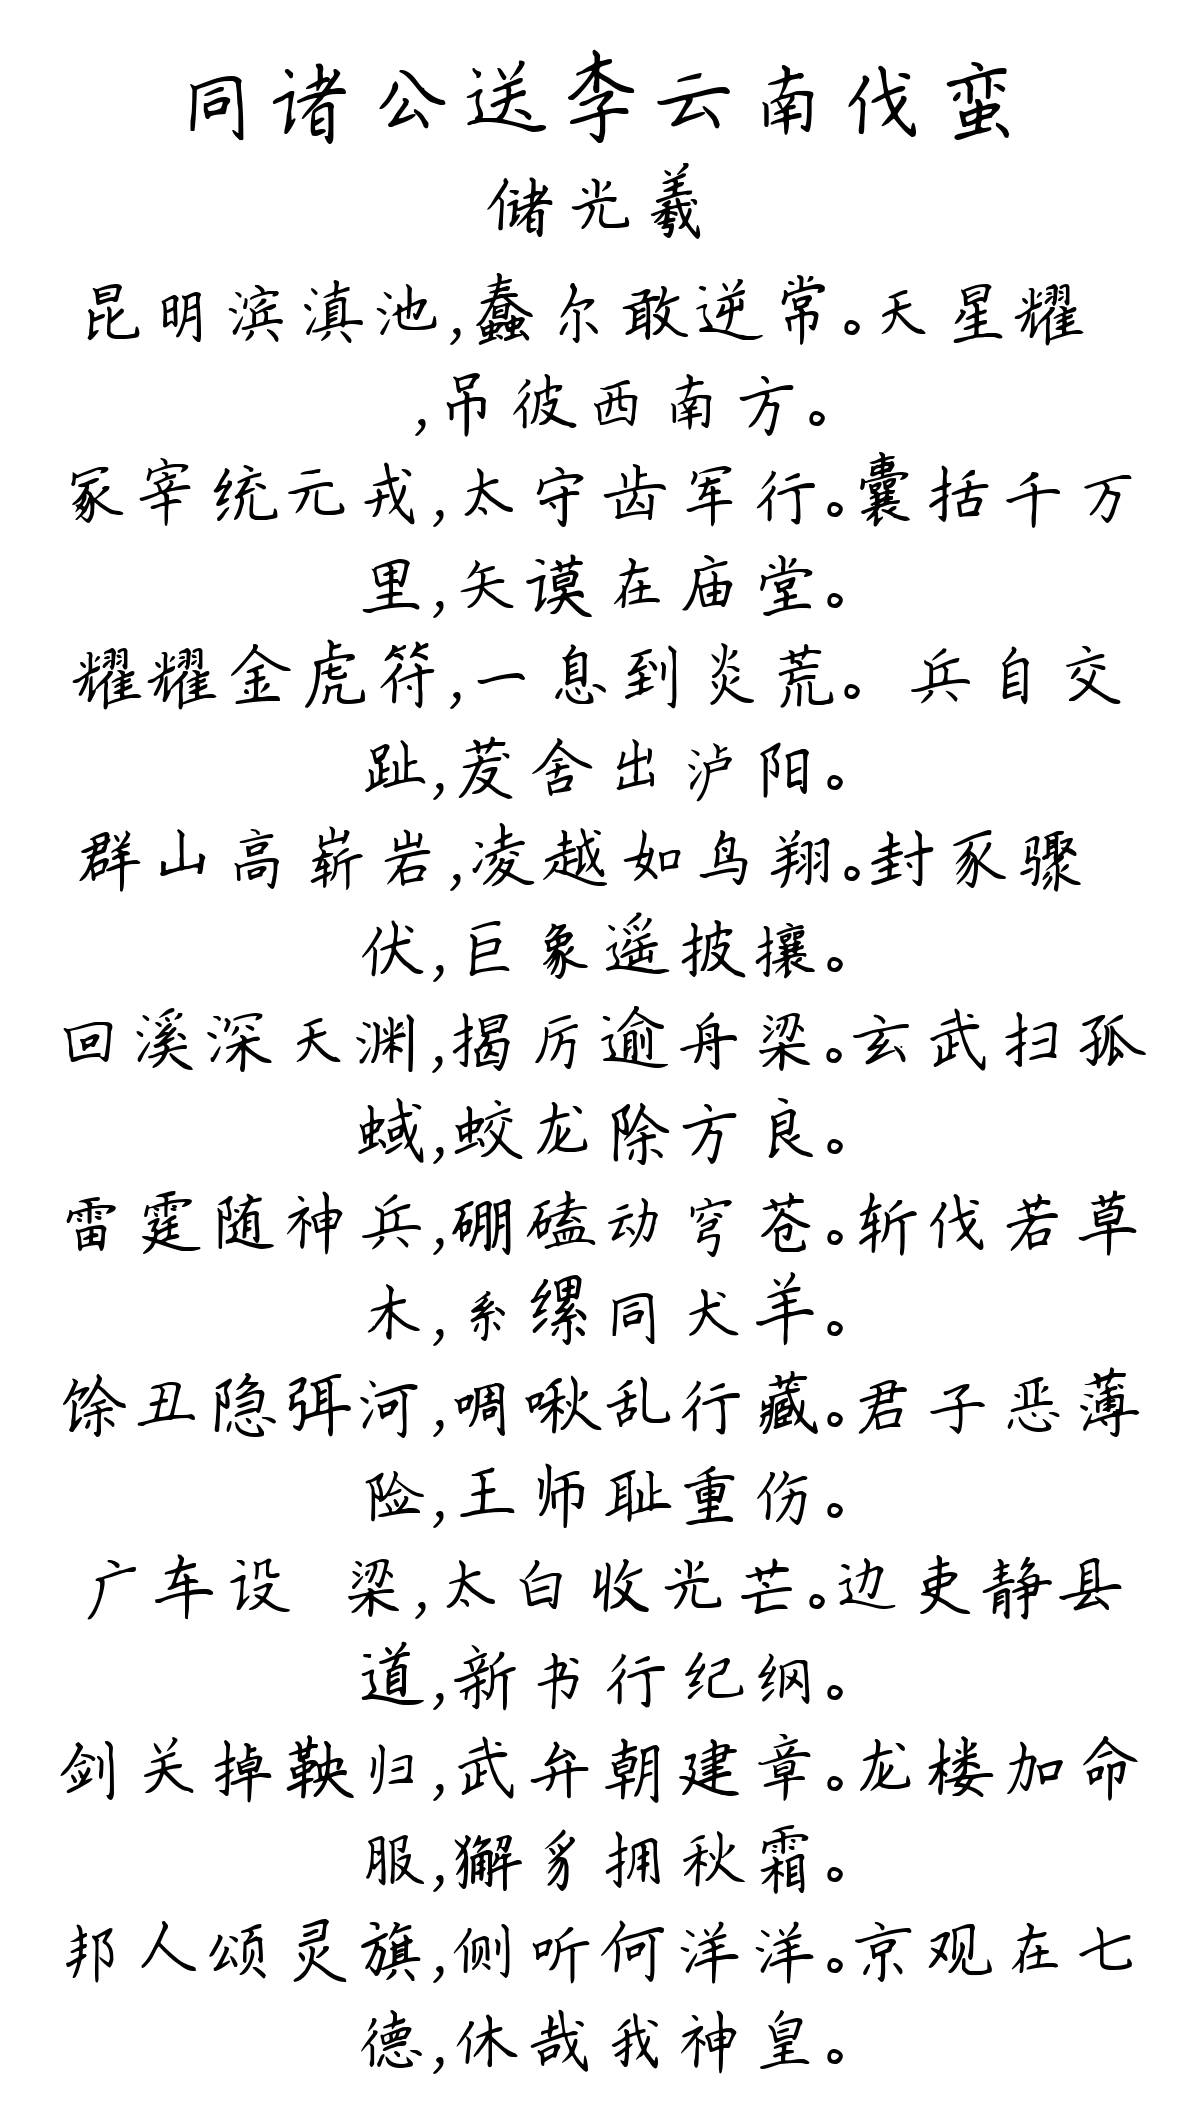 同诸公送李云南伐蛮
储光羲
昆明滨滇池,蠢尔敢逆常。天星耀
,吊彼西南方。
冢宰统元戎,太守齿军行。囊括千万
里,矢谟在庙堂。
耀耀金虎符,一息到炎荒。 兵自交
趾,茇舍出泸阳。
群山高崭岩,凌越如鸟翔。封豕骤
伏,巨象遥披攘。
回溪深天渊,揭厉逾舟梁。玄武扫孤
蜮,蛟龙除方良。
雷霆随神兵,硼磕动穹苍。斩伐若草
木,系缧同犬羊。
馀丑隐弭河,啁啾乱行藏。君子恶薄
险,王师耻重伤。
广车设 梁,太白收光芒。边吏静县
道,新书行纪纲。
剑关掉鞅归,武弁朝建章。龙楼加命
服,獬豸拥秋霜。
邦人颂灵旗,侧听何洋洋。京观在七
德,休哉我神皇。